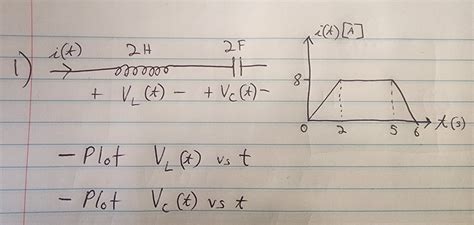 1)
i(t) 2H 2F
+ V_L(t) - + V_C(t) -
i(t) [A]
8
0 2 5 6 t(s)
- Plot V_L(t) vs t
- Plot V_C(t) vs t